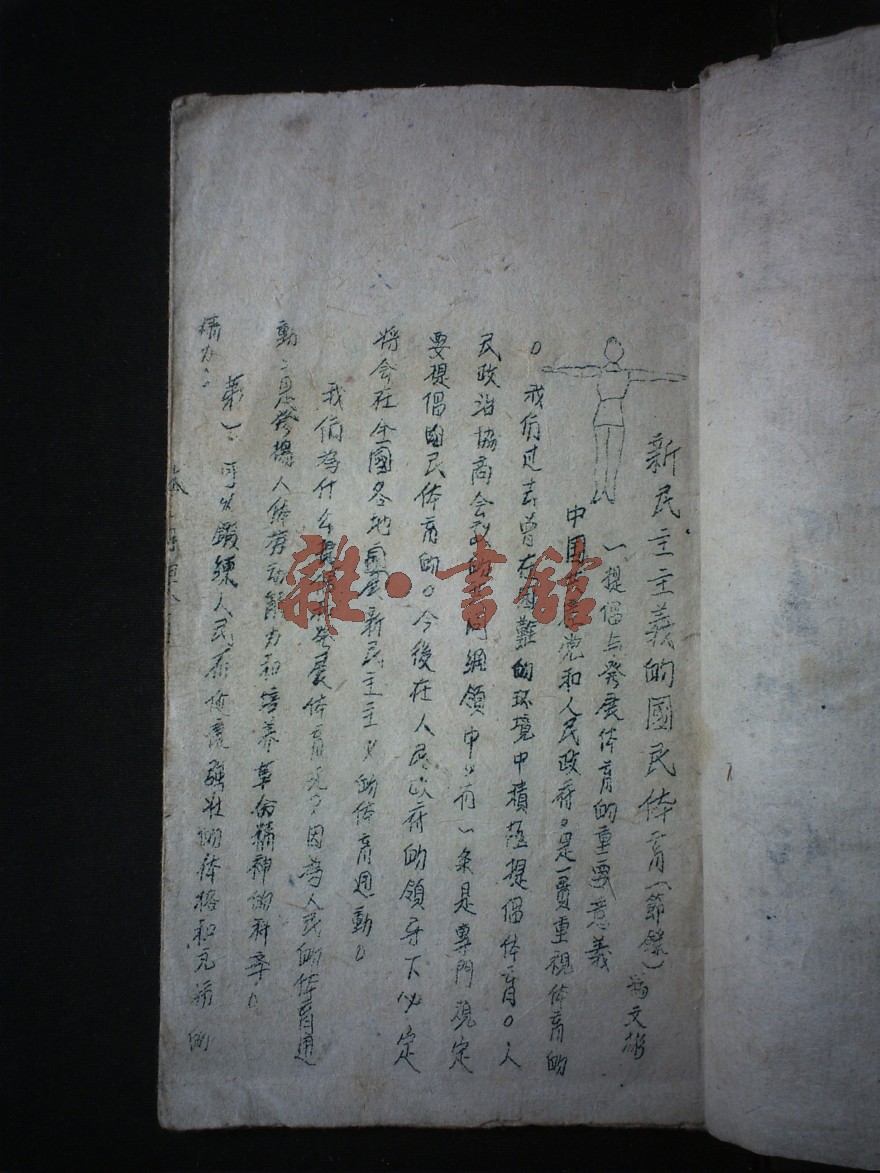 新民主主义的國民体育(節錄) 馮文彬
一提倡与発展体育的重要意義
中国共产党和人民政府。是一貫重視体育的
。我们过去曾在困難的环境中積極提倡体育。人
民政治協商会议的共同綱領中、有一条是專門規定
要提倡國民体育的。今後在人民政府的領导下必定
将会在全國各地開展新民主主义的体育運動。
我们為什么提倡和発展体育呢？因為人民的体育運
動：是発揚人体劳动能力和培养革命精神的科学。
第一：可以鍛練人民 健康强壮的体格和充沛的
精力：
雜·書館